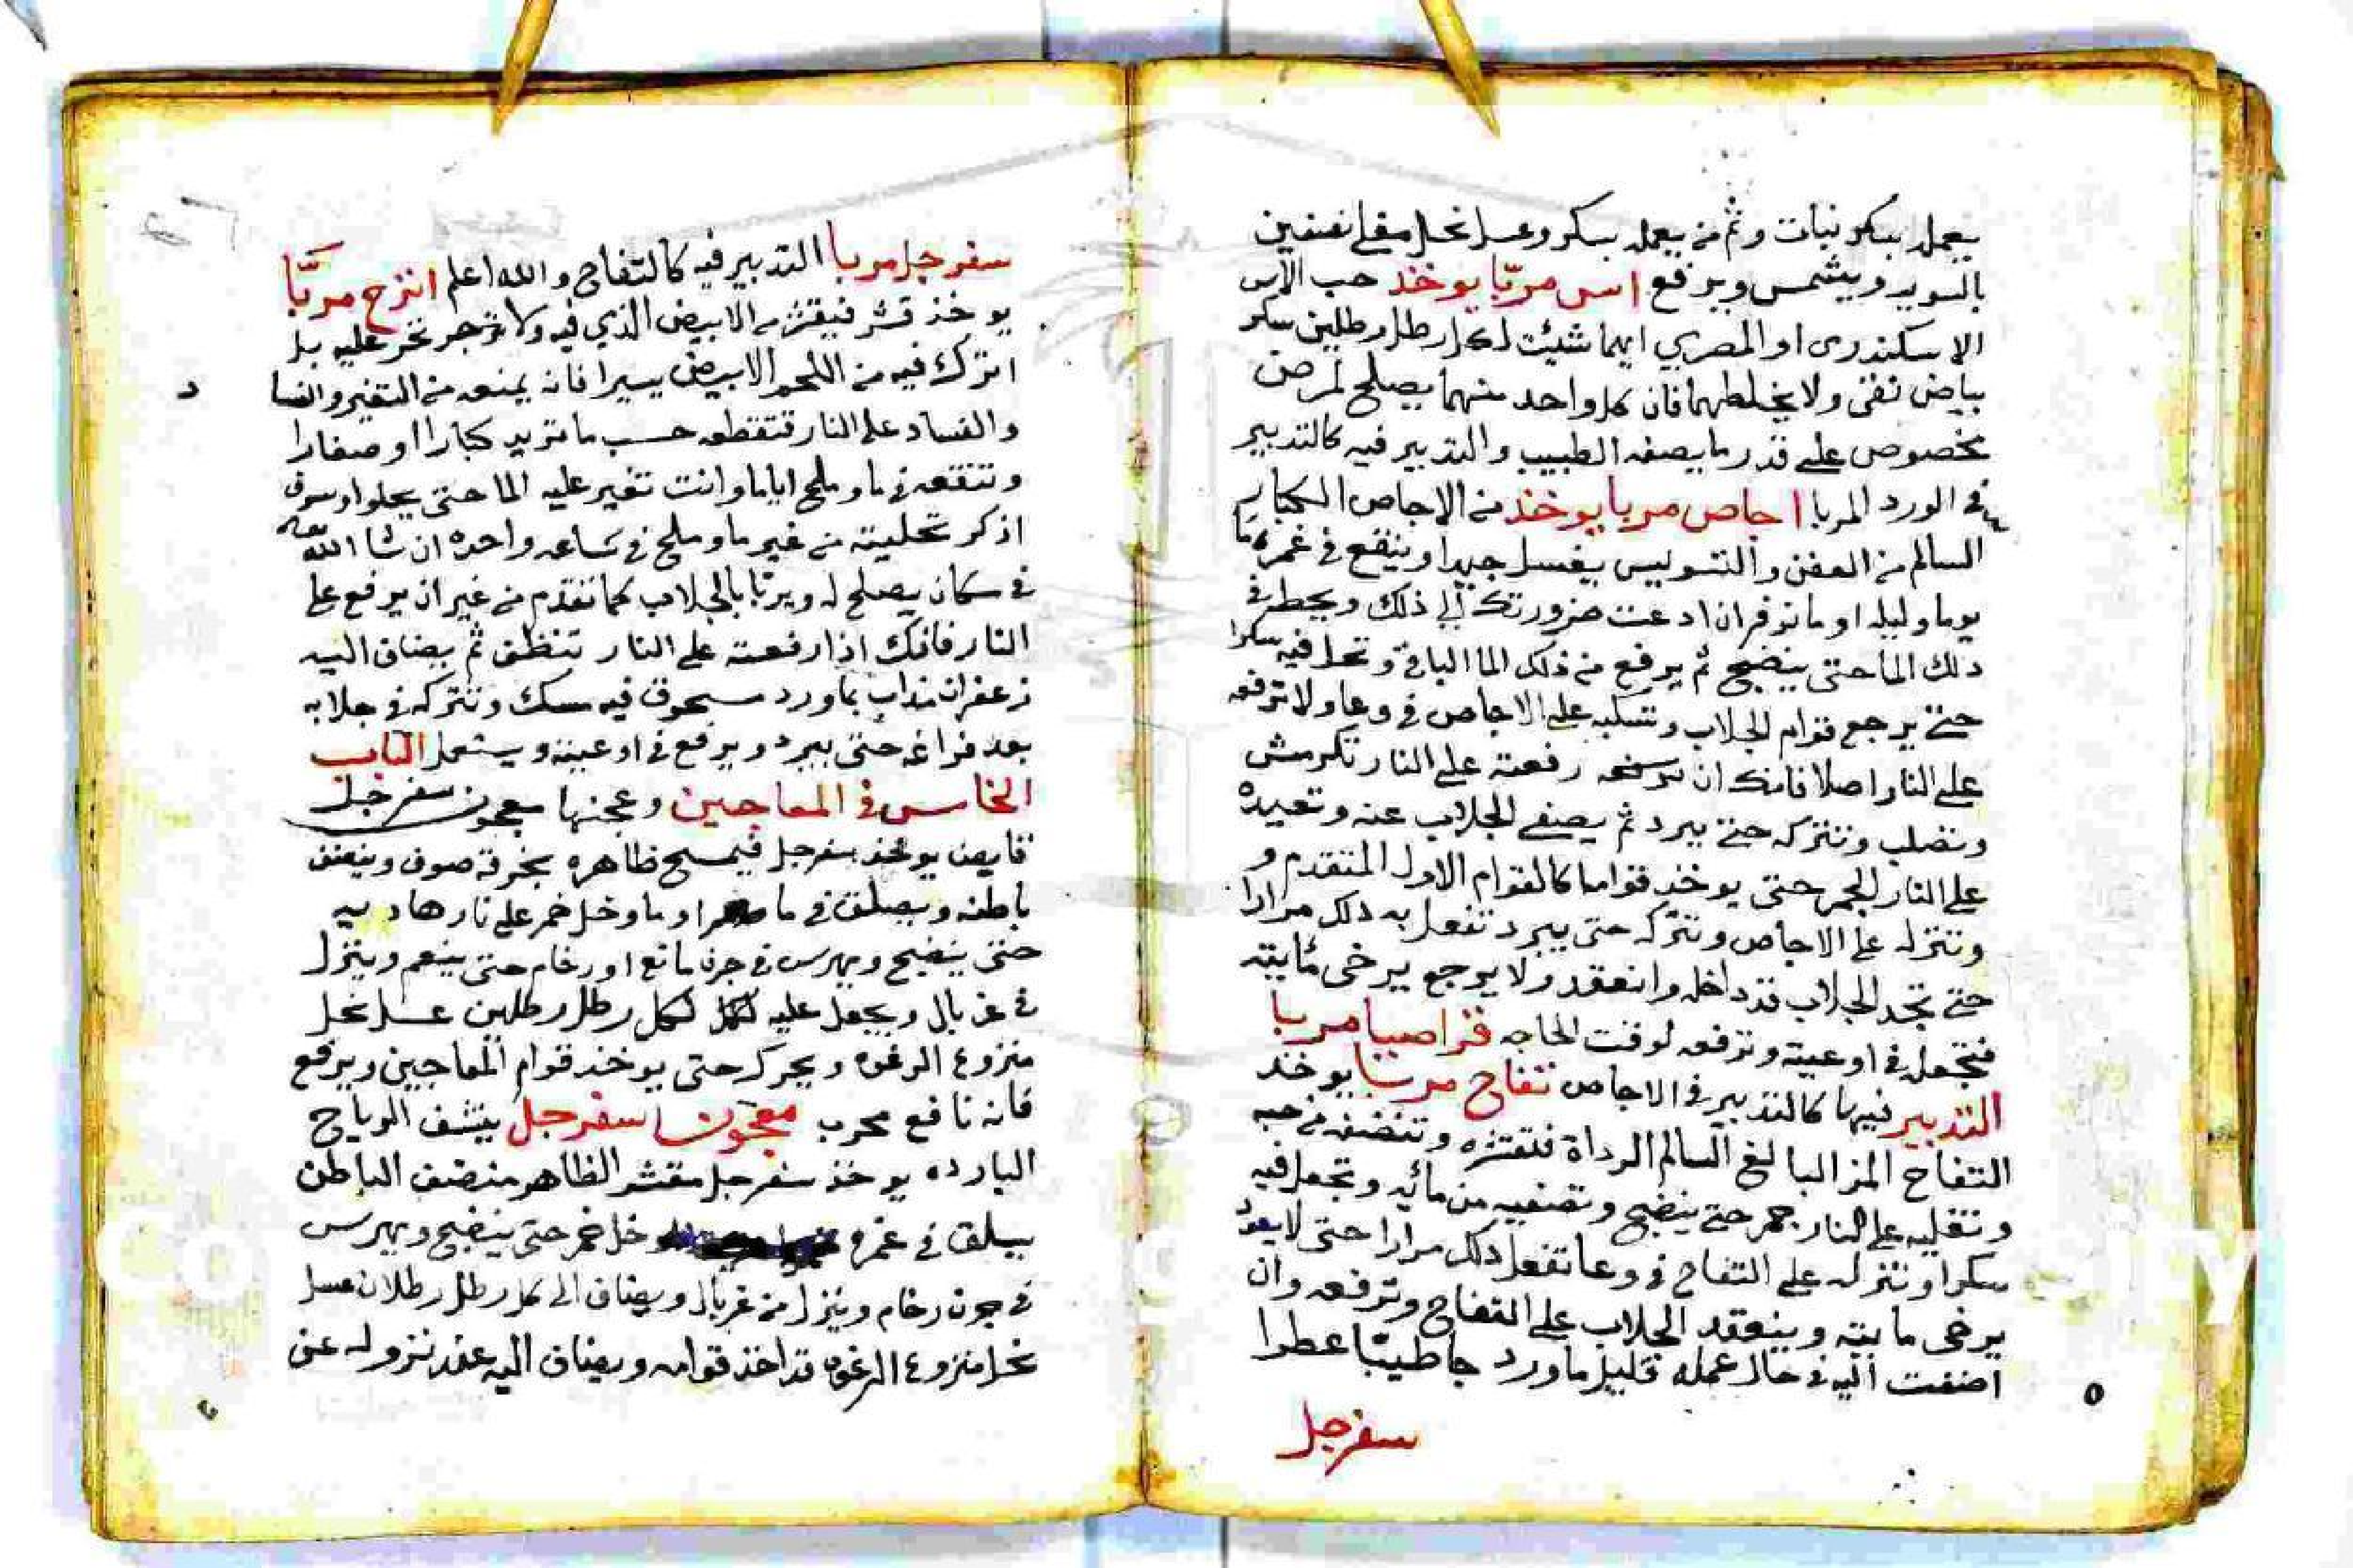 يعمل بسكر نبات وثم من يعمل بسكر وعسل نحل مغلي نصفين
بالسويه ويشمس ويرفع اس مربّا يوخذ حب الاس
الاسكندرى او المصري ايهما شئت لكل رطل رطلين سكر
بياض نقى ولا يخلطهما فان كل واحد منهما يصلح لمرض
مخصوص على قدر ما يصفه الطبيب والتدبير فيه كالتدبير
في الورد المربا اجاص مربا يوخذ من الاجاص الكبار
السالم من العفن والتسويس يغسل جيدا وينقع في غمره ما
يوما وليله او ما توفر ان ادعت ضرورتك الي ذلك ويحط في
دلك الما حتى ينضج ثم يرفع من ذلك الما الباقي وتحل فيه سكرا
حتى يرجع قوام الجلاب وتسكبه على الاجاص في وعا ولا ترفعه
على النار اصلا فانك ان رفعته على النار تكرمش
وتصلب وتتركه حتى يبرد ثم يصفى الجلاب عنه وتعيده
على النار الجمر حتى يوخذ قواما كالقوام الاول المتقدم و
وتنزله على الاجاص وتتركه حتى يبرد تفعل به دلك مرارا
حتى تجد الجلاب قد داخله وانعقد ولا يوجع يرخى مائيته
فتجعل في اوعيته وترفعه لوقت الحاجه قراصيا مربا
التدبير فيها كالتدبير في الاجاص تفاح مربا يوخذ
التفاح المز البالغ السالم الرداة فتقشره وتنضفه من حبه
وتغليه على النار جمر حتى ينضج وتصفيه من مائه وتجعل فيه
سكرا وتنزله على التفاح في وعا تفعل دلك مرارا حتى لا يعود
يرخى مايته وينعقد الجلاب على التفاح وترفعه وان
اضفت اليه في حال عمله قليل ماورد جا طيبّا عطرا
سفرجل
سفرجل مربا التدبير فيه كالتفاح والله اعلم اترج مربّا
يوخذ قشر فيقشر من الابيض الذي فيه ولا تجر عليه بل
اترك فيه من اللحم الابيض يسيرا فانه يمنعه من التغير والفسا
والفساد على النار فتقطعه حسب ما تريد كبارا او صغارا
وتنقعه في ما وملح اياما وانت تغير عليه الما حتى يحلوا وسوف
اذكر تحليته من غير ما وملح في ساعه واحده ان شا الله
في مكان يصلح له ويربا بالجلاب كما تقدم من غير ان يرفع على
النار فانك اذا رفعته على النار ثم يضاف اليه
زعفران مذاب بماورد مسحوق فيه مسك وتتركه في جلابه
بعد فراغه حتى يبرد ويرفع في اوعيته ويستعمل الباب
الخامس في المعاجين وعجنها معجون سفرجل
قابض يوخذ سفرجل فيمسح ظاهره بخرقة صوف وينضف
باطنه ويصلق في ما او ما وخل خمر على نار هاديه
حتى ينضج ويهرس في جرن مانع او رخام حتى ينعم وينزل
في غربال ويجعل عليه لكل رطل رطلين عسل نحل
منزوع الرغوه ويحرك حتى يوخذ قوام المعاجين ويرفع
فانه نافع مجرب معجون سفرجل ينشف الرياح
البارده يوخذ سفرجل مقشر الظاهر منضف الباطن
يسلق في غمره وخل خمر حتى ينضج ويهرس
في جرن رخام وينزل من غربال ويضاف الى كل رطل رطلان عسل
نحل منزوع الرغوه قد اخذ قوامه ويضاف اليه عند نزوله عن